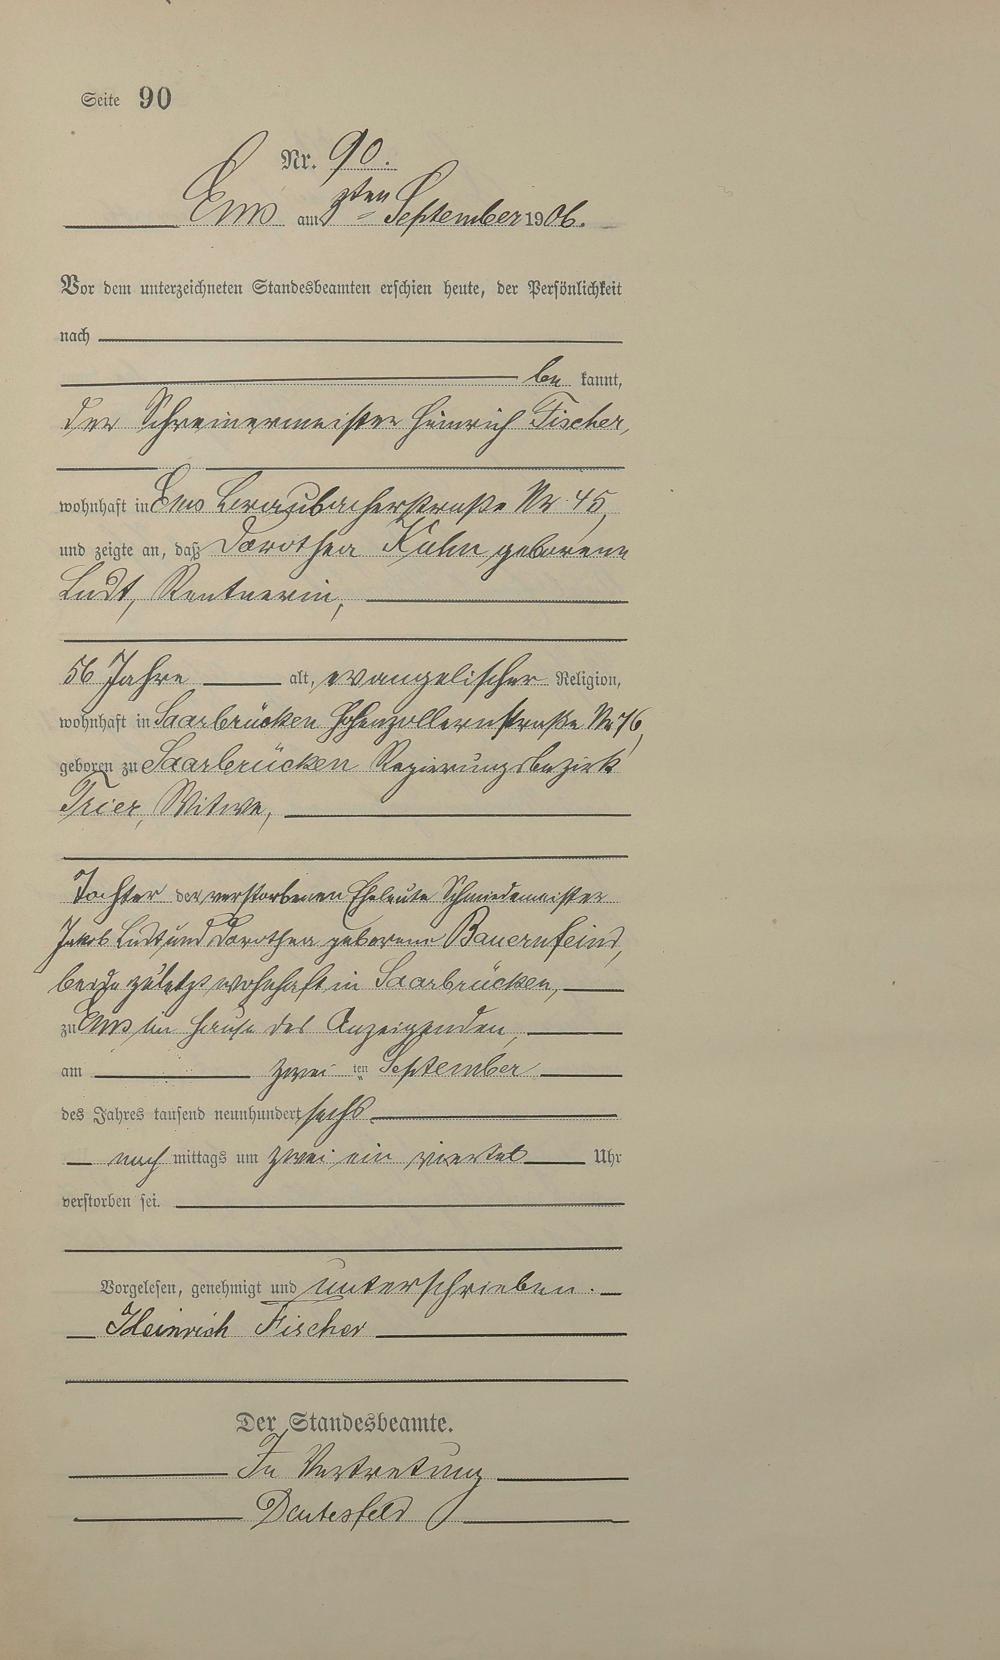 Seite 90
Nr. 90.
Ems am 3ten September 1906.
Vor dem unterzeichneten Standesbeamten erschien heute, der Persönlichkeit
nach
be kannt,
der Schreinermeister Heinrich Fischer,
wohnhaft in Ems Braubacherstraße Nr 45,
und zeigte an, daß Dorothea Kuhn geborene
Ludt, Rentnerin,
56 Jahre alt, evangelischer Religion,
wohnhaft in Saarbrücken Hohenzollernstraße Nr 76,
geboren zu Saarbrücken Regierungsbezirk
Trier, Witwe,
Tochter der verstorbenen Eheleute Schmiedemeister
Jakob Ludt und Dorothea geborene Bauernfeind,
beide zuletzt wohnhaft in Saarbrücken,
zu Ems im Hause des Anzeigenden,
am zwei ten September
des Jahres tausend neunhundert sechs
nach mittags um zwei ein viertel Uhr
verstorben sei.
Vorgelesen, genehmigt und unterschrieben.
Heinrich Fischer
Der Standesbeamte.
In Vertretung